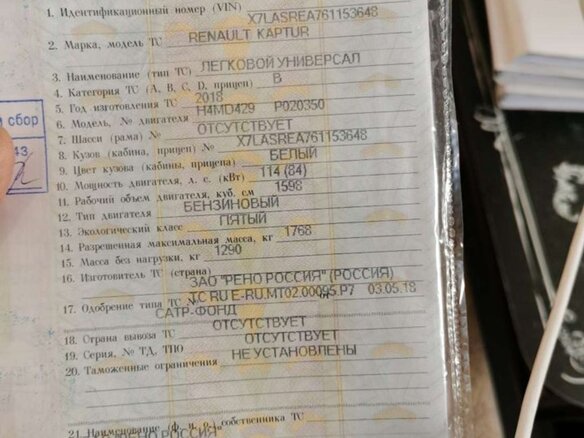 1. Идентификационный номер (VIN) X7LASREA761153648
2. Марка, модель ТС RENAULT KAPTUR
3. Наименование (тип ТС) ЛЕГКОВОЙ УНИВЕРСАЛ
4. Категория ТС (А, В, С, D, прицеп) B
5. Год изготовления ТС 2018
6. Модель, № двигателя H4MD429 P020350
7. Шасси (рама) № ОТСУТСТВУЕТ
8. Кузов (кабина, прицеп) № X7LASREA761153648
9. Цвет кузова (кабины, прицепа) БЕЛЫЙ
10. Мощность двигателя, л. с. (кВт) 114 (84)
11. Рабочий объем двигателя, куб. см 1598
12. Тип двигателя БЕНЗИНОВЫЙ
13. Экологический класс ПЯТЫЙ
14. Разрешенная максимальная масса, кг 1768
15. Масса без нагрузки, кг 1290
16. Изготовитель ТС (страна)
ЗАО "РЕНО РОССИЯ" (РОССИЯ)
17. Одобрение типа ТС № ТС RU E-RU.MT02.00095.P7 03.05.18
САТР-ФОНД
18. Страна вывоза ТС ОТСУТСТВУЕТ
19. Серия, № ТД, ТПО ОТСУТСТВУЕТ
20. Таможенные ограничения НЕ УСТАНОВЛЕНЫ
21. Наименование (ф. и. о.) собственника ТС
РЕНО РОССИЯ"
сбор
43